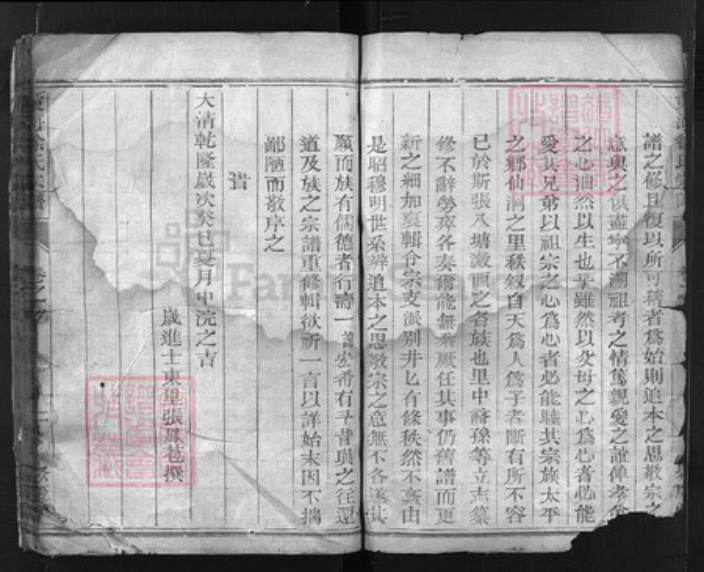 譜之修且復以所可稽者爲始則追本之思敬宗之
意與之俱盡寧不溯祖考之情篤親愛之誼俾孝
之心油然以生也乎雖然以父母之心爲心者必能
愛其兄弟以祖宗之心爲心者必能睦其宗族太平
之鄉仙洞之里秩敘自天爲人爲子者斷有所不容
已於斯張八塘漵西之各族也里中裔孫等立志纂
修不辭勞瘁各奏爾能無忝厥任其事仍舊譜而更
新之細加裒輯令宗支派別井匕有條秩然不紊由
是昭穆明世系辨追本之思敬宗之意無不各遂其
願而族有儒德者行濤一翁宏希有予昔與之往還
道及族之宗譜重修輯欲祈一言以詳始末因不揣
鄙陋而敬序之
峕
大清乾隆歲次癸巳夏月中浣之吉
歲進士東里張鳳苞撰